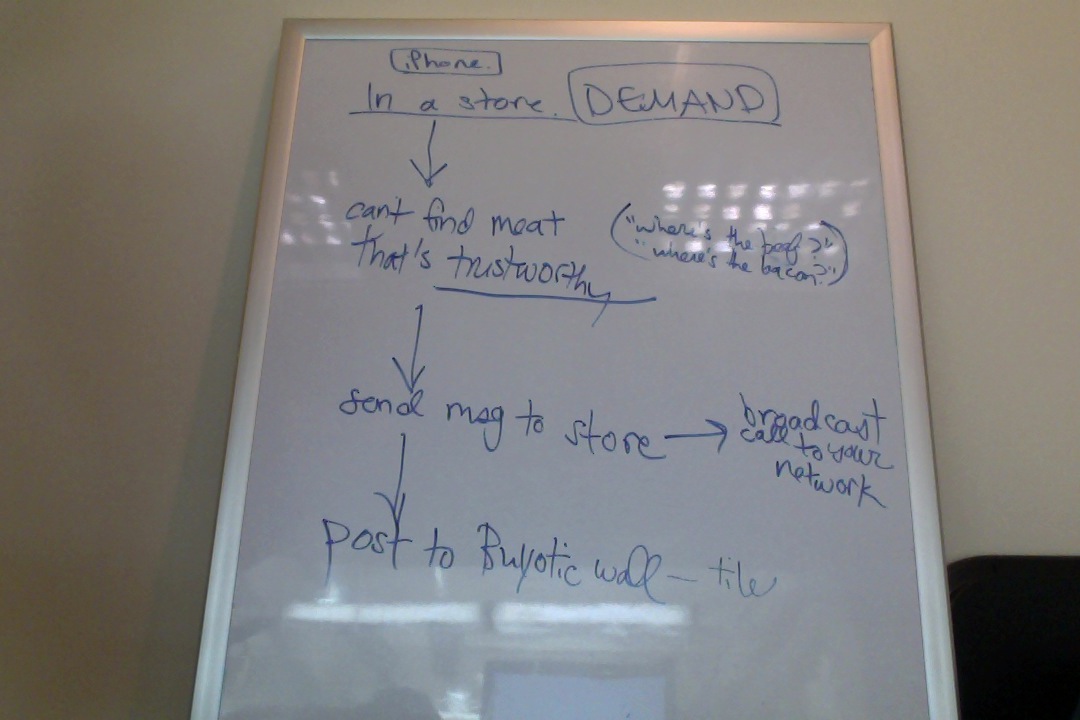 iPhone.
In a store. DEMAND
cant find meat
that's trustworthy
("where's the beef?"
"where's the bacon?")
send msg to store → broadcast
call to your
network
post to Buyotic wall – tile